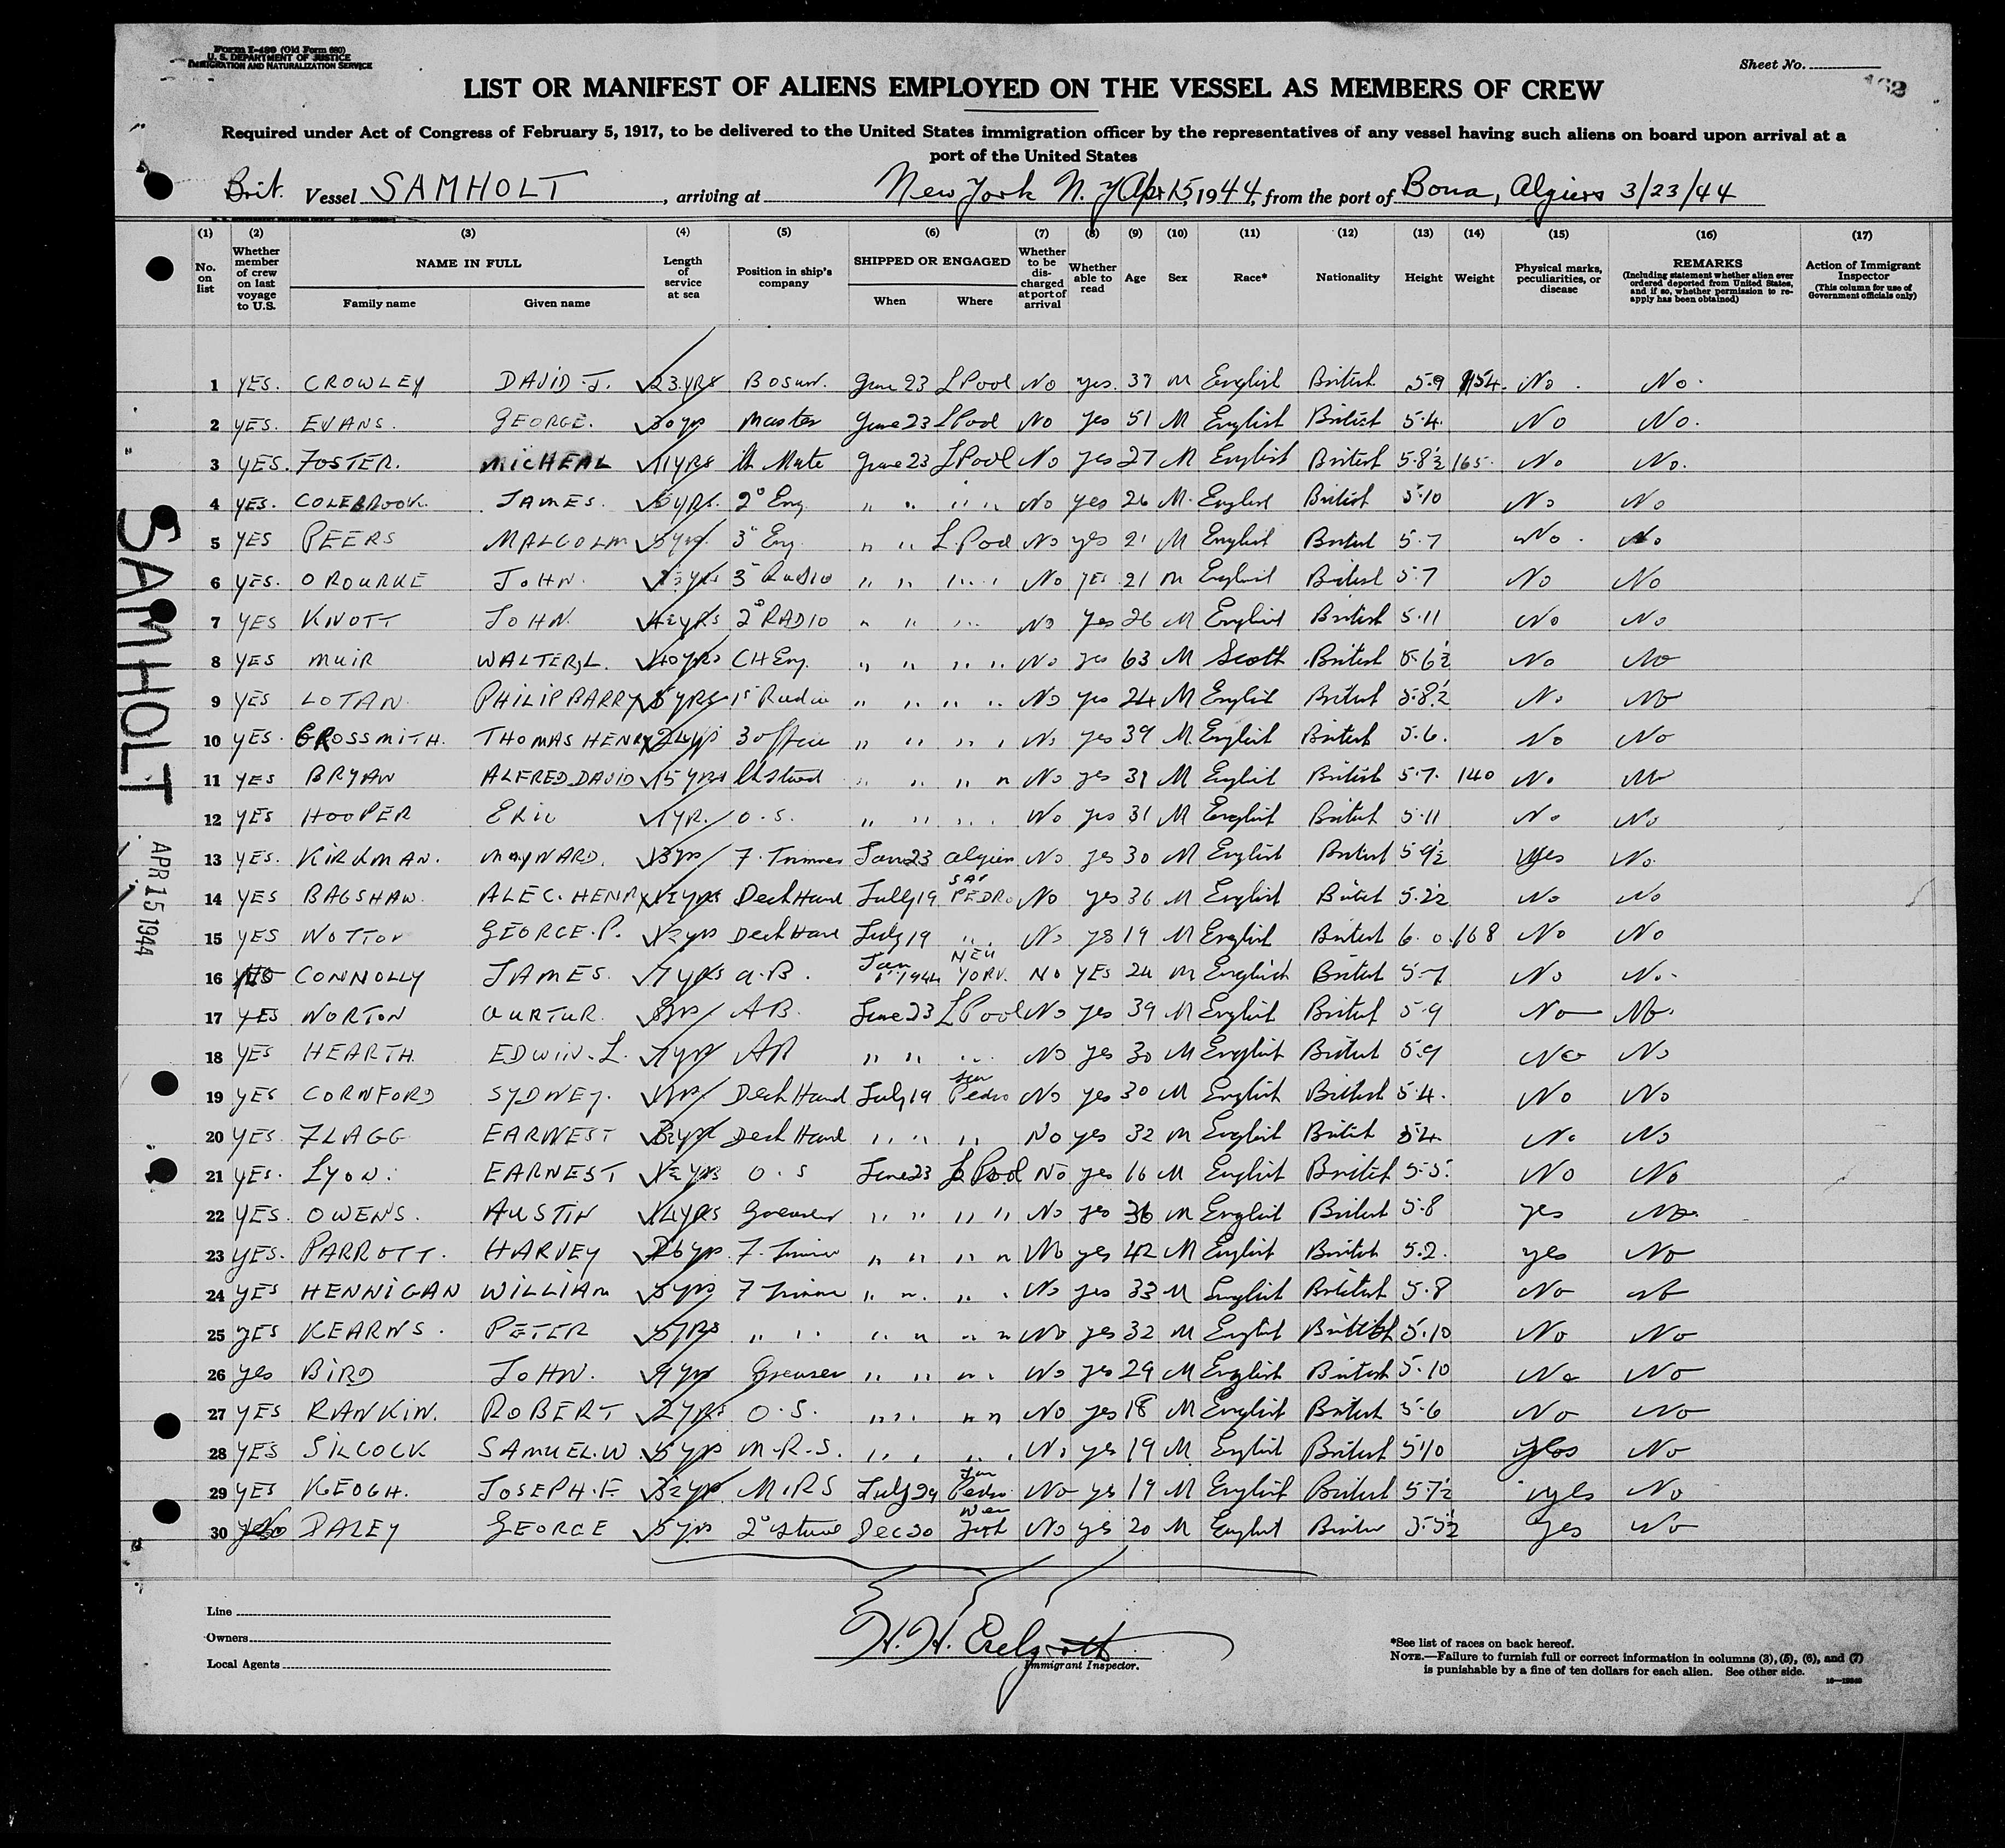 Form I-489 (Old Form 680)
U. S. DEPARTMENT OF JUSTICE
IMMIGRATION AND NATURALIZATION SERVICE
Sheet No.
LIST OR MANIFEST OF ALIENS EMPLOYED ON THE VESSEL AS MEMBERS OF CREW
Required under Act of Congress of February 5, 1917, to be delivered to the United States immigration officer by the representatives of any vessel having such aliens on board upon arrival at a
port of the United States
Brit. Vessel SAMHOLT, arriving at New York N. Y. Apr 15, 1944, from the port of Bona, Algiers 3/23/44
(1) (2) (3) (4) (5) (6) (7) (8) (9) (10) (11) (12) (13) (14) (15) (16) (17)
No. on list
Whether member of crew on last voyage to U.S.
NAME IN FULL
Family name Given name
Length of service at sea
Position in ship's company
SHIPPED OR ENGAGED
When Where
Whether to be discharged at port of arrival
Whether able to read
Age Sex Race* Nationality Height Weight
Physical marks, peculiarities, or disease
REMARKS
(Including statement whether alien ever ordered deported from United States, and if so, whether permission to reapply has been obtained)
Action of Immigrant Inspector
(This column for use of Government officials only)
1 YES. CROWLEY DAVID J. 23 YRS Bosun. June 23 LPool No yes. 37 M English British 5.9 154. No. No.
2 YES. EVANS. GEORGE. 30 yrs Master June 23 LPool No yes 51 M English British 5.4. No No.
3 YES. FOSTER. MICHEAL 11 YRS Mate June 23 LPool No yes 27 M English British 5.8½ 165. No No.
4 YES. COLEBROOK. JAMES. YRS. 2° Eng. " " " " No yes 26 M. English British 5.10 No No
5 YES PEERS MALCOLM 3° Eng. " " L Pool No yes 21 M English British 5.7 No. No
6 YES. OROURKE JOHN. 3° Radio " " " " No YES 21 M English British 5.7 No No
7 YES KNOTT JOHN. YRS 2° RADIO " " " No yes 26 M English British 5.11 No No
8 YES MUIR WALTER, L. 40 YRS CH Eng. " " " " No yes 63 M Scott British 5.6½ No No
9 YES LOTAN. PHILIP BARRY 5 YRS 1st Radio " " " " No yes 24 M English British 5.8½ No No
10 YES. GROSSMITH. THOMAS HENRY 24 yrs 3 office " " " " No yes 39 M. English British 5.6. No No
11 YES BRYAN ALFRED DAVID 15 YRS Ch Stwd " " " " No yes 31 M English British 5.7. 140 No. No
12 YES HOOPER ERIC 1 YR. O.S. " " " " No yes 31 M English British 5.11 No No
13 YES. KIRKMAN. MAYNARD. 3 yrs F. Trimmer Jan 23 Algiers No yes 30 M English British 5.9½ yes No.
14 YES BAGSHAW. ALEC. HENRY Deck Hand July 19 SAN PEDRO No yes 36 M English British 5.2½ No No
15 YES NOTTON GEORGE. P. Deck Hand July 19 " " No yes 19 M English British 6.0 168 No No
16 CONNOLLY JAMES. 7 YRS A.B. Jan 1944 NEW YORK. No YES 24 M English British 5-7 No No.
17 YES NORTON ARTUR. A B. June 23 LPool No yes 39 M English British 5.9 No No.
18 YES HEARTH EDWIN. L. AB " " " " No yes 30 M English British 5.9 No No
19 YES CORNFORD SYDNEY. Deck Hand July 19 San Pedro No yes 30 M English British 5.4. No No
20 YES FLAGG EARNEST Deck Hand " " " No yes 32 M English British 5.4 No No
21 YES. LYON. EARNEST O.S June 23 L Pool No yes 16 M English British 5.5. No No
22 YES. OWENS. AUSTIN 14 YRS Greaser " " " " No yes 36 M English British 5.8 yes No.
23 YES. PARROTT. HARVEY 26 yrs F. Trimmer " " " " No yes 42 M English British 5.2. yes No
24 YES HENNIGAN WILLIAM 5 yrs F Trimmer " " " " No yes 33 M English British 5.8 No No
25 YES KEARNS. PETER " " " " " " No yes 32 M English British 5.10 No No
26 yes BIRD JOHN. 9 yrs Greaser " " " " No yes 29 M English British 5.10 No No
27 YES RANKIN. ROBERT 2 yrs O.S. " " " " No yes 18 M English British 5.6 No No
28 YES SILCOCK SAMUEL. W. 5 yrs M.R.S. " " " " No yes 19 M English British 5.10 yes No
29 YES KEOGH. JOSEPH. F. M.R.S July 29 San Pedro No yes 19 M English British 5.7½ yes No
30 DALEY GEORGE 5 yrs 2° Stwd Dec 20 New York No yes 20 M English British 5.5½ yes No
SAMHOLT
APR 15 1944
Line
Owners
Local Agents
Immigrant Inspector.
*See list of races on back hereof.
NOTE.—Failure to furnish full or correct information in columns (3), (5), (6), and (7)
is punishable by a fine of ten dollars for each alien. See other side.